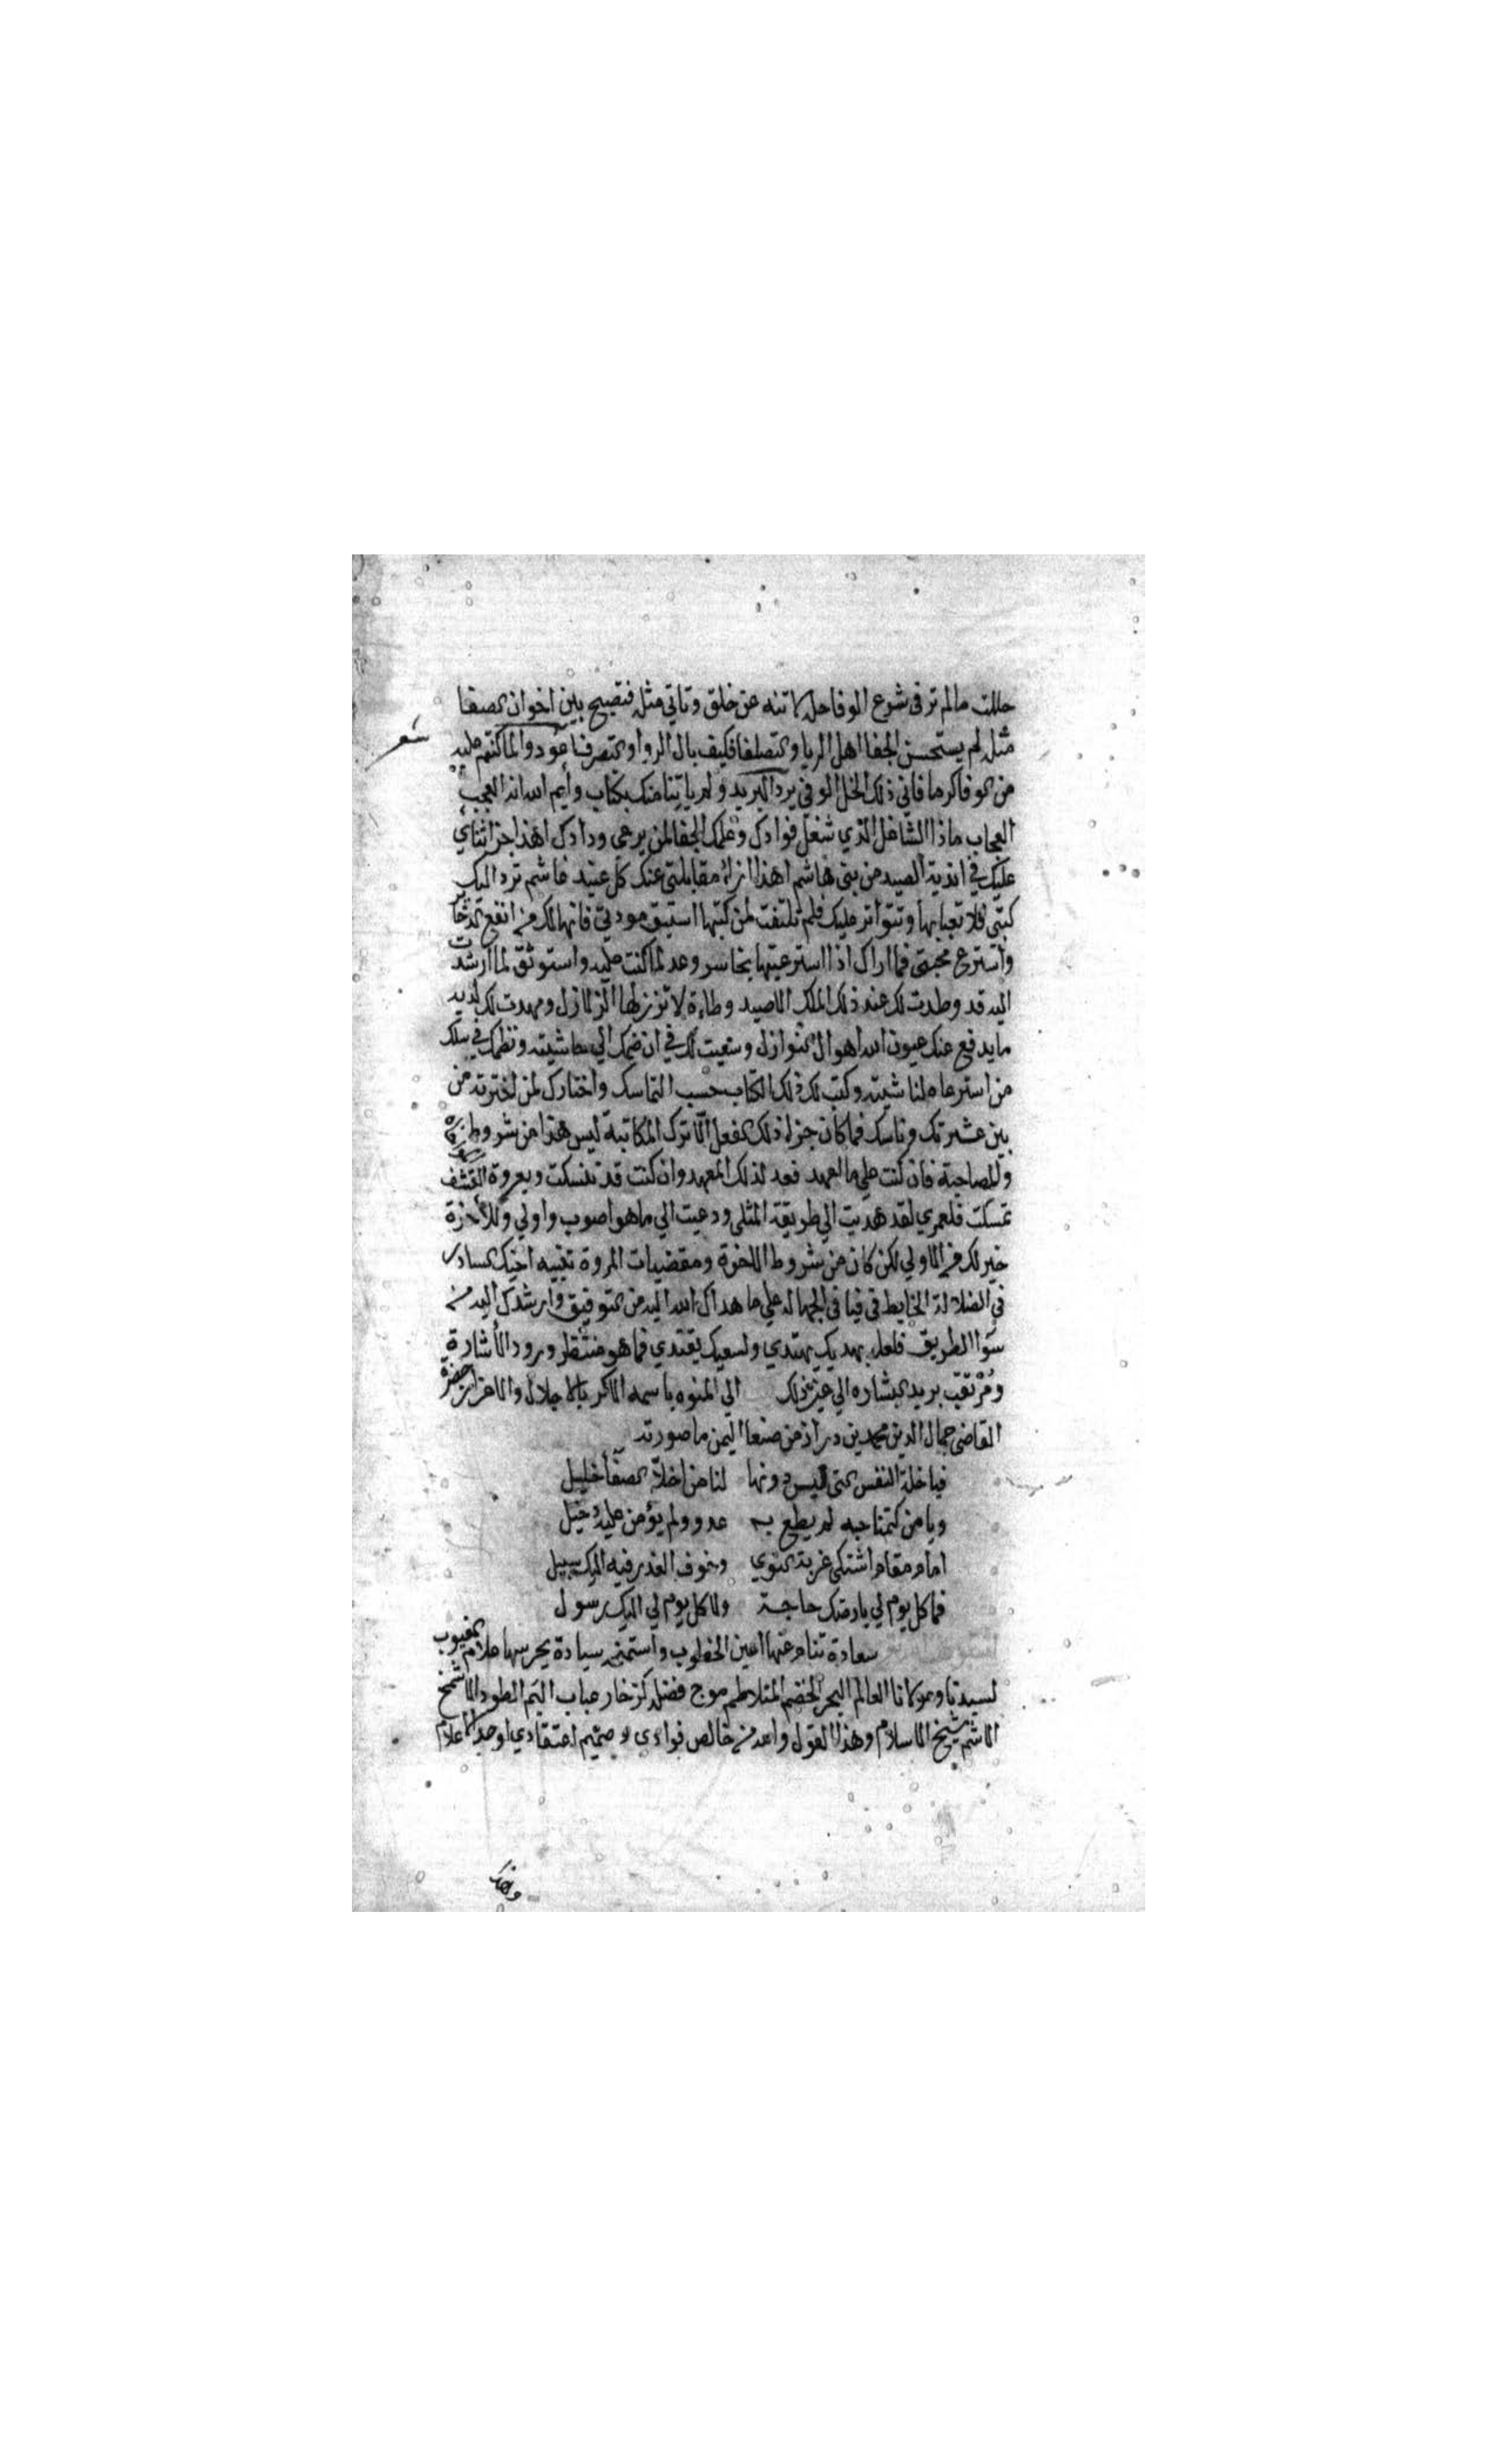 حللت مالم تر في شرع الوفا حله لا تنه عن خلق وتاتي مثله فتصبح بين اخوان الصفا
شعر
مثله لم يستحسن الجفا اهل الريا والتصلفا فكيف بال الروا والتصرفنا عودوا لما كنتم عليه
من الوفا كرما فاني ذلك الخل الوفي يرد البريد ولم ياتنا منك بكتاب وأيم الله انه العجب
العجاب ماذا الشاغل الذي شغل فوادك وعلمك الجفا لمن يرعى ودادك اهذا جزا ثناي
عليك في اندية الصيد من بني هاشم اهذا ازاء مقابلتي عنك كل عنيد غاشم ترد اليك
كتبي فلا تعبا بها وتتواتر عليك فلم تلتفت لمن كتبها استبق مودتي فانها لك من انفع الذخاير
واسترع محبتي فما اراك اذا استرعيتها بخاسر وعد لما كنت عليه واستوثق لما ارشدت
اليه قد وطدت لك عند ذلك الملك الاصيد وطاءة لا تزلزلها الزلازل ومهدت لك لديه
ما يدفع عنك عيون الله اهوال النوازل وسعيت لك في ان ضمك الي حاشيته ونظمك في سلك
من استرعاه لناشيته وكتب لك ذلك الكتاب حسب التماسك واختارك لمن اخترته من
بين عشيرتك وناسك فما كان جزا ذلك الفعل الا ترك المكاتبة ليس هذا من شروط
والمصاحبة فان كنت علي ما العهد فعد لذلك المعهد وان كنت قد تنسكت وبعروة التقشف
تمسكت فلعمري لقد هديت الي طريقة المثلى ودعيت الي ما هو اصوب واولي وللأخرة
خير لك من الاولي لكن كان من شروط الاخوة ومقضيات المروة تنبيه اخيك السادر
في الضلالة الخابط في فيافي الجهالة علي ما هداك الله اليه من التوفيق وارشدك اليه من
سوا الطريق فلعله بهديك يهتدي ولسعيك يقتدي فما هو منتظر ورود الأشارة
ومرتقب بريد البشاره الي غير ذلك الي المنوه باسمه الاكر بالاجلال والاعزاز حضرة
القاضي جمال الدين محمد بن دراز من صنعا اليمن ما صورته
فيا خلة النفس التي ليس دونها لنا من اخلاّ الصفا خليل
ويا من كتمنا حبه لم يطع به عدو ولم يؤمن عليه دخيل
اما من مقام اشتكي غربة النوي وخوف العدر فيه اليك سبيل
فما كل يوم لي بارضك حاجة ولا كل يوم لي اليك رسول
سعادة تنام عنها اعين الخطوب واستمنح سيادة يحرسها علام الغيوب
لسيدنا ومولانا العالم البحر الخضم المتلاطم موج فضله كزخار عباب اليم الطود الاشمخ
الاشم شيخ الاسلام وهذا القول واعد من خالص فوادي وصميم اعتقادي اوحد الاعلام